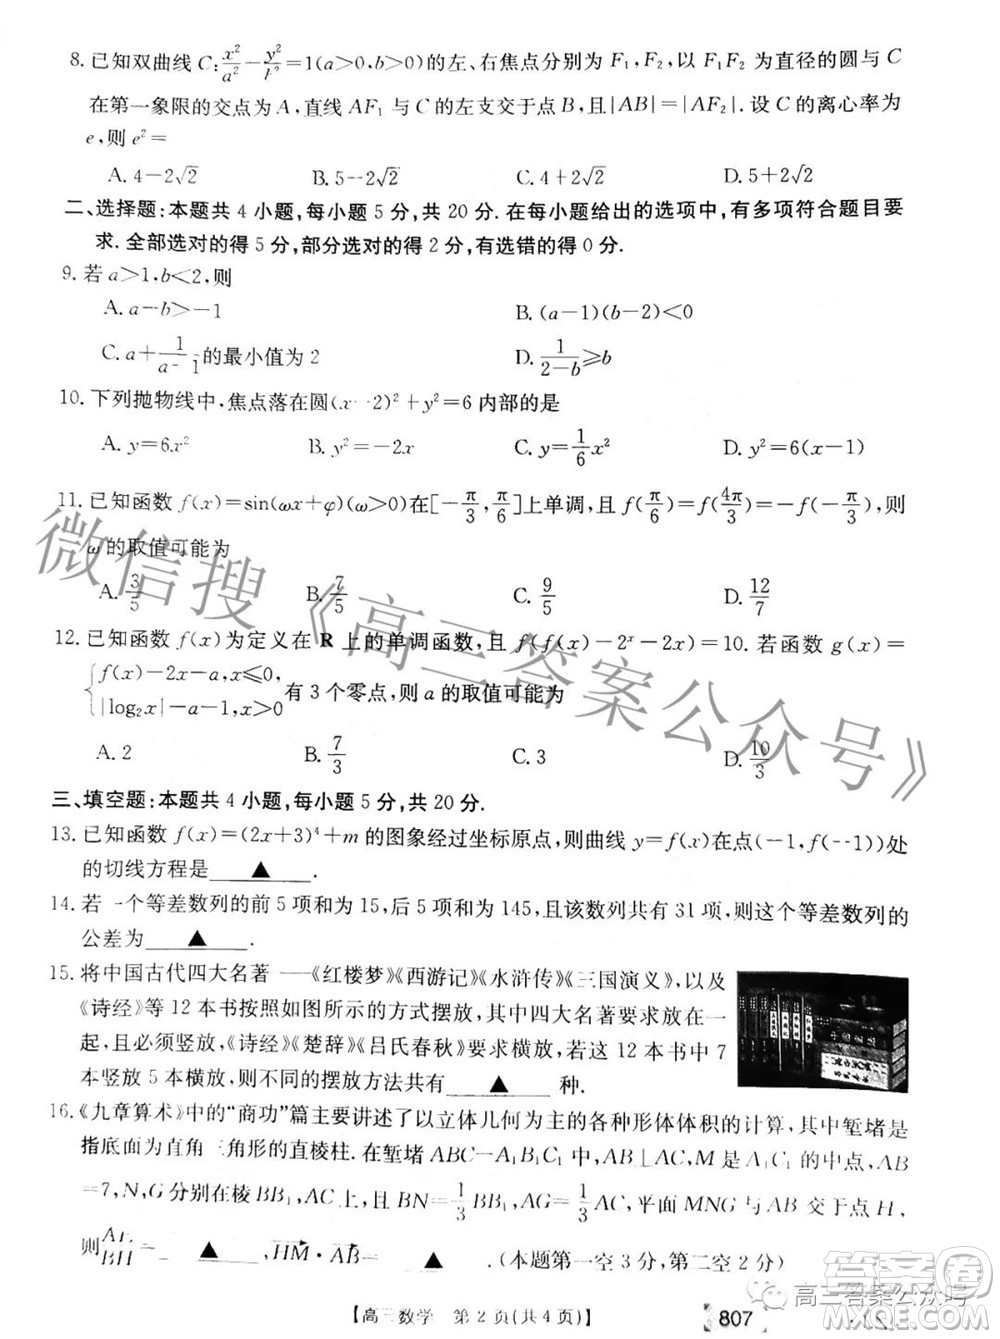 8. 已知双曲线 C: x²/a² − y²/b² = 1(a>0,b>0)的左、右焦点分别为 F₁,F₂,以 F₁F₂ 为直径的圆与 C
在第一象限的交点为 A,直线 AF₁ 与 C 的左支交于点 B,且|AB|=|AF₂|. 设 C 的离心率为
e,则 e²=
A. 4−2√2 B. 5−2√2 C. 4+2√2 D. 5+2√2
二、选择题:本题共 4 小题,每小题 5 分,共 20 分. 在每小题给出的选项中,有多项符合题目要
求. 全部选对的得 5 分,部分选对的得 2 分,有选错的得 0 分.
9. 若 a>1,b<2,则
A. a−b>−1 B. (a−1)(b−2)<0
C. a+1/(a−1)的最小值为 2 D. 1/(2−b)≥b
10. 下列抛物线中,焦点落在圆(x−2)²+y²=6 内部的是
A. y=6x² B. y²=−2x C. y=1/6 x² D. y²=6(x−1)
11. 已知函数 f(x)=sin(ωx+φ)(ω>0)在[−π/3,π/6]上单调,且 f(π/6)=f(4π/3)=−f(−π/3),则
ω 的取值可能为
A. 3/5 B. 7/5 C. 9/5 D. 12/7
12. 已知函数 f(x)为定义在 R 上的单调函数,且 f(f(x)−2ˣ−2x)=10. 若函数 g(x)=
{f(x)−2x−a,x≤0,
|log₂x|−a−1,x>0 有 3 个零点,则 a 的取值可能为
A. 2 B. 7/3 C. 3 D. 10/3
三、填空题:本题共 4 小题,每小题 5 分,共 20 分.
13. 已知函数 f(x)=(2x+3)⁴+m 的图象经过坐标原点,则曲线 y=f(x)在点(−1,f(−1))处
的切线方程是 ▲ .
14. 若一个等差数列的前 5 项和为 15,后 5 项和为 145,且该数列共有 31 项,则这个等差数列的
公差为 ▲ .
15. 将中国古代四大名著——《红楼梦》《西游记》《水浒传》《三国演义》,以及
《诗经》等 12 本书按照如图所示的方式摆放,其中四大名著要求放在一
起,且必须竖放,《诗经》《楚辞》《吕氏春秋》要求横放,若这 12 本书中 7
本竖放 5 本横放,则不同的摆放方法共有 ▲ 种.
16.《九章算术》中的“商功”篇主要讲述了以立体几何为主的各种形体体积的计算,其中堑堵是
指底面为直角三角形的直棱柱. 在堑堵 ABC−A₁B₁C₁ 中,AB⊥AC,M 是 A₁C₁ 的中点,AB
=7,N,G 分别在棱 BB₁,AC 上,且 BN=1/3 BB₁,AG=1/3 AC,平面 MNG 与 AB 交于点 H,
则 AH/BH= ▲ ,HM·AB= ▲ . (本题第一空 3 分,第二空 2 分)
【高三数学 第 2 页(共 4 页)】
807
微信搜《高三答案公众号》
高三答案公众号
答案圈
MXQE.COM